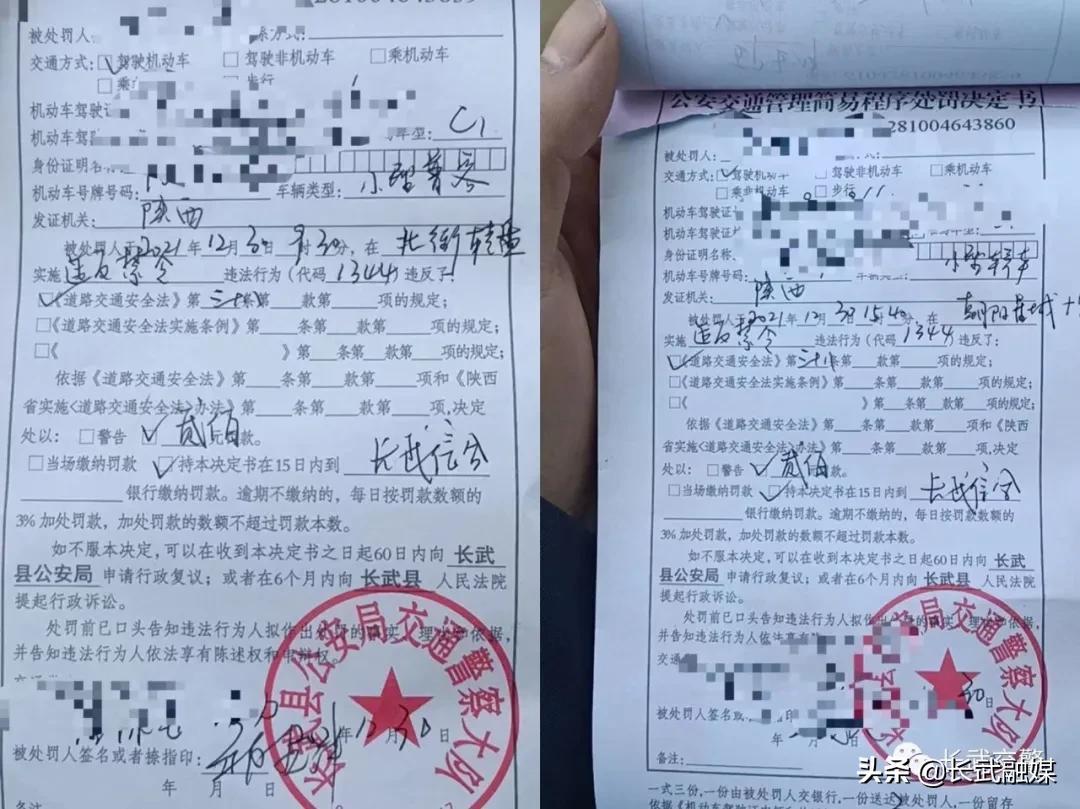 被处罚人:
交通方式: ☑驾驶机动车 □驾驶非机动车 □乘机动车
机动车驾驶证
机动车驾 准驾车型: C1
身份证明名称
机动车号牌号码: 车辆类型: 小型普客
发证机关: 陕西
被处罚人于2021年12月30日9时30分,在北街转盘
实施违反禁令违法行为(代码1344)违反了:
☑《道路交通安全法》第三十八条第 款第 项的规定;
□《道路交通安全法实施条例》第 条第 款第 项的规定;
□《 》第 条第 款第 项的规定;
依据《道路交通安全法》第 条第 款第 项和《陕西
省实施<道路交通安全法>办法》第 条第 款第 项,决定
处以: □警告 ☑贰佰元罚款。
□当场缴纳罚款 ☑持本决定书在15日内到 长武信合
银行缴纳罚款。逾期不缴纳的,每日按罚款数额的
3%加处罚款,加处罚款的数额不超过罚款本数。
如不服本决定,可以在收到本决定书之日起60日内向 长武
县公安局 申请行政复议;或者在6个月内向 长武县 人民法院
提起行政诉讼。
处罚前已口头告知违法行为人拟作出处罚的事实、理由和依据,
并告知违法行为人依法享有陈述权和申辩权。
年12月30日
被处罚人签名或者捺指印:
年 月 日
备注
长武县公安局交通警察大队
公安交通管理简易程序处罚决定书
281004643860
被处罚人:
交通方式: ☑驾驶机动车 □驾驶非机动车 □乘机动车
□乘非机动车 □步行
机动车驾驶证
身份证明名称、
机动车号牌号码: 车辆类型: 小型轿车
发证机关: 陕西
被处罚人于2021年12月30日15时40分,在朝阳县城十
实施违反禁令违法行为(代码1344)违反了:
☑《道路交通安全法》第三十八条第 款第 项的规定;
□《道路交通安全法实施条例》第 条第 款第 项的规定;
□《 》第 条第 款第 项的规定;
依据《道路交通安全法》第 条第 款第 项和《陕西
省实施<道路交通安全法>办法》第 条第 款第 项,决定
处以: □警告 ☑贰佰元罚款。
□当场缴纳罚款 ☑持本决定书在15日内到 长武信合
银行缴纳罚款。逾期不缴纳的,每日按罚款数额的
3%加处罚款,加处罚款的数额不超过罚款本数。
如不服本决定,可以在收到本决定书之日起60日内向 长武
县公安局 申请行政复议;或者在6个月内向 长武县 人民法院
提起行政诉讼。
处罚前已口头告知违法行为人拟作出处罚的事实、理由和依据,
并告知违法行为人依法享有
交通
30日
被处罚人签名或 指印
年 月 日
备注:
局交通警察大队
一式三份,一份由被处罚人交银行,一份送达被处罚人,一份留存
依据《机动车驾驶证
长武交警
头条@长武融媒